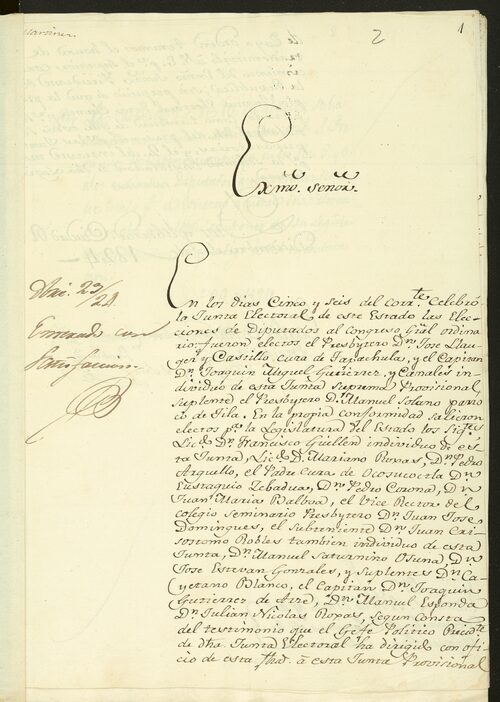 2
1
Exmo. Señor.
Dbre. 23/24
Enterado con
satisfaccion.
En los dias Cinco y seis del corrte. Celebró
la Junta Electoral, de este Estado las Elec-
ciones de Diputados al Congreso Gral ordina-
rio: fueron electos el Presbytero Dn. Jose Llau-
ger y Castillo Cura de Tapachula, y el Capitan
Dn. Joaquin Miguel Gutierrez, y Canales in-
dividuo de esta Junta suprema Provisional,
suplente el Presbytero Dn. Manuel Solano parro-
co de Tila. En la propia conformidad salieron
electos pa. la Legislatura del Estado los Sigtes
Licdo. Dn. Francisco Guillen individuo de es-
ta Junta, Licdo. D. Mariano Roxas, Dn. Pedro
Arguello, el Padre Cura de Ocosucoctla Dn.
Eustaquio Zebadua, Dn. Pedro Corona, Dn.
Juan Maria Balboa, el Vice Rector del
colegio Seminario Presbytero Dn. Juan Jose
Domingues, el Subteniente Dn. Juan Cri-
sostomo Robles tambien individuo de esta
Junta, Dn. Manuel Saturnino Osuna, Dn.
Jose Estevan Gonzales, y suplentes Dn. Ca-
yetano Blanco, el Capitan Dn. Joaquin
Gutierrez de Arze, Dn. Manuel Esponda
Dn. Julian Nicolas Roxas, segun consta
del testimonio que el Gefe Politico Presidte
de dha. Junta Electoral ha dirigido con ofi-
cio de esta fha. á esta Junta Provisional